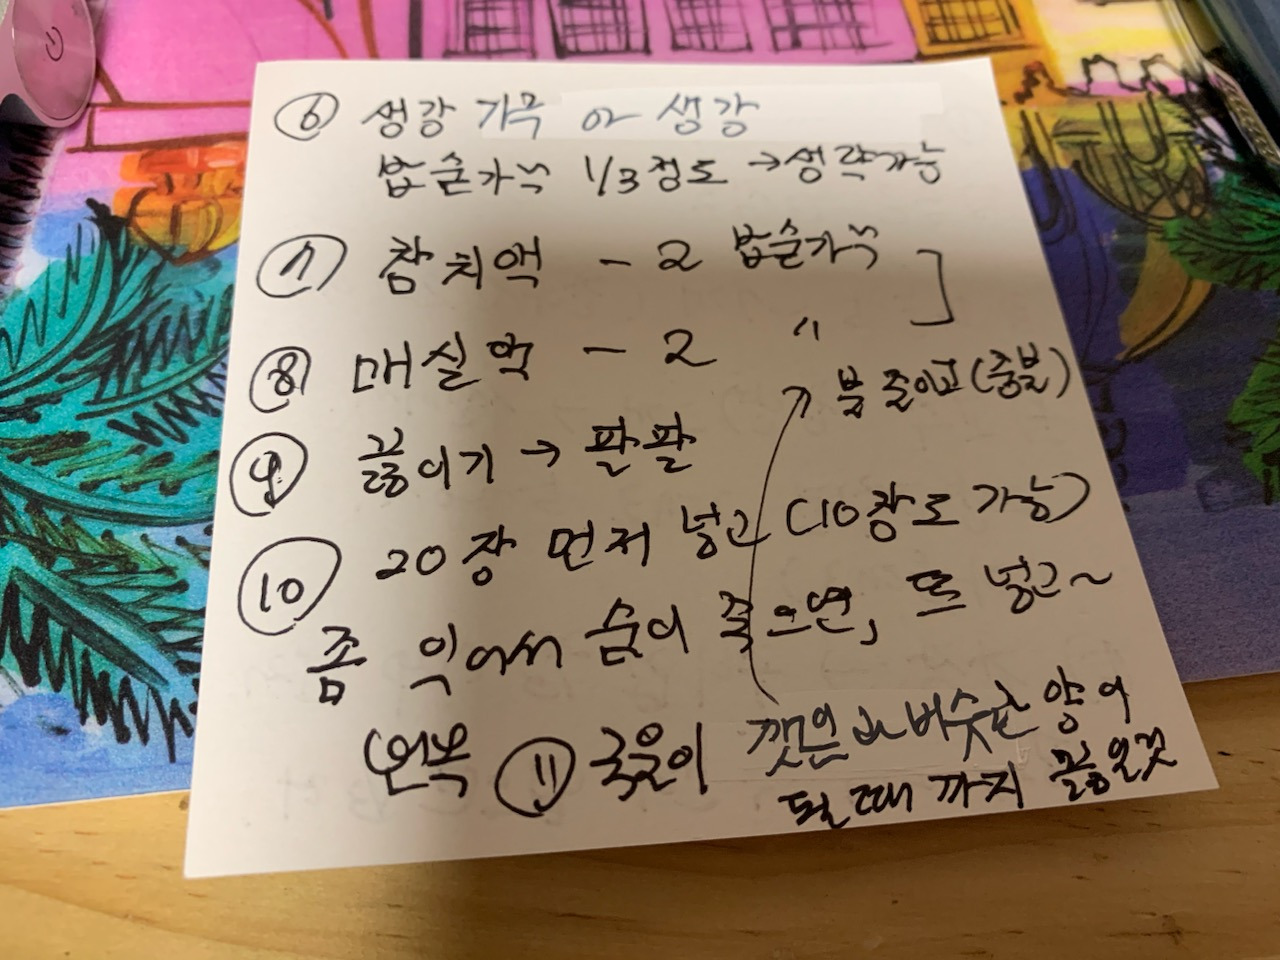 ⑥ 생강 가루 or 생강
밥숟가락 1/3정도 → 생략가능
⑦ 참치액 - 2 밥숟가락
⑧ 매실액 - 2 〃
⑨ 끓이기 → 팔팔
불 줄이고 (중불)
⑩ 20장 먼저 넣고 (10장도 가능)
좀 익어서 숨이 죽으면, 또 넣고~
⑪ 국물이 깻잎과 비슷한 양이
될 때 까지 끓일것